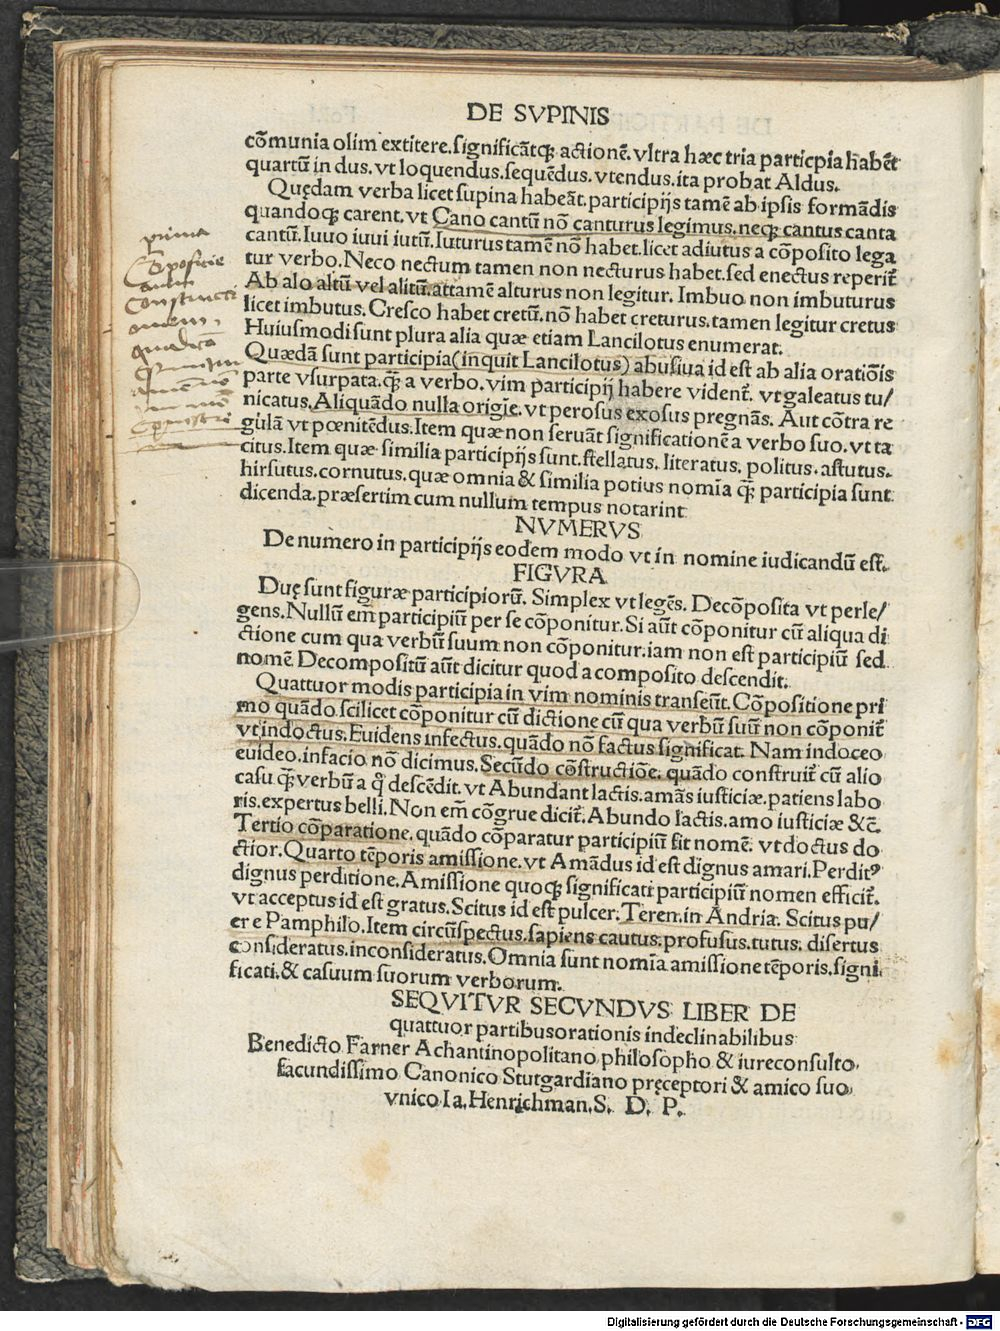 DE SVPINIS
cōmunia olim extitere.significātqꝫ actionē.vltra hæc tria particpia habēt
quartū in dus.vt loquendus.sequēdus.vtendus.ita probat Aldus.
Quędam verba licet supina habeāt.participijs tamē ab ipsis formādis
quandoqꝫ carent.vt Cano cantū nō canturus legimus.neqꝫ cantus canta
cantū.Iuuo iuui iutū.Iuturus tamē nō habet.licet adiutus a cōposito lega
tur verbo.Neco nectum tamen non necturus habet.sed enectus reperit᷑
Ab alo altū vel alitū.attamē alturus non legitur. Imbuo non imbuturus
licet imbutus. Cresco habet cretū.nō habet creturus.tamen legitur cretus
Huiusmodi sunt plura alia quæ etiam Lancilotus enumerat.
Quædā sunt participia(inquit Lancilotus) abusiua id est ab alia oratiōis
parte vsurpata.q̄ꝫ a verbo.vim participij habere vident᷑. vt galeatus tu/
nicatus.Aliquādo nulla origīe.vt perosus exosus pregnās. Aut cōtra re
gulā vt pœnitēdus.Item quæ non seruāt significationē a verbo suo.vt ta
citus.Item quæ similia participijs sunt.stellatus. literatus. politus.astutus.
hirsutus.cornutus.quæ omnia & similia potius nomīa q̄ꝫ participia sunt
dicenda.præsertim cum nullum tempus notarint
NVMERVS
De numero in participijs eodem modo vt in nomine iudicandū est.
FIGVRA
Duę sunt figuræ participiorū. Simplex vt legēs. Decōposita vt perle/
gens.Nullū em̄ participiū per se cōponitur.Si aūt cōponitur cū aliqua di
ctione cum qua verbū suum non cōponitur.iam non est participiū sed
nomē Decompositū aūt dicitur quod a composito descendit.
Quattuor modis participia in vim nominis transeūt. Cōpositione pri
mo quādo scilicet cōponitur cū dictione cū qua verbū suū non cōponit᷑
vt indoctus.Euidens infectus.quādo nō factus significat. Nam indoceo
euideo.infacio nō dicimus.Secūdo cōstructiōe.quādo construit᷑ cū alio
casu q̄ꝫ verbū a q̊ descēdit.vt Abundant lactis.amās iusticiæ.patiens labo
ris.expertus belli.Non em̄ cōgrue dicit᷑.Abundo lactis.amo iusticiæ &c̄.
Tertio cōparatione.quādo cōparatur participiū fit nomē.vt doctus do
ctior.Quarto tēporis amissione.vt Amādus id est dignus amari.Perditꝰ
dignus perditione.Amissione quoqꝫ significati participiū nomen efficit᷑.
vt acceptus id est gratus.Scitus id est pulcer.Teren.in Andria. Scitus pu/
er e Pamphilo.Item circūspectus.sapiens cautus.profusus.tutus. disertus
consideratus.inconsideratus.Omnia sunt nomīa amissione tēporis.signi
ficati.& casuum suorum verborum.
SEQVITVR SECVNDVS LIBER DE
quattuor partibusorationis indeclinabilibus
Benedicto Farner Achantinopolitano philosopho & iureconsulto.
facundissimo Canonico Stutgardiano pręceptori & amico suo.
vnico Ia.Henrichman.S. D. P.
prima
Cōpositio
Constructi
Digitalisierung gefördert durch die Deutsche Forschungsgemeinschaft - DFG